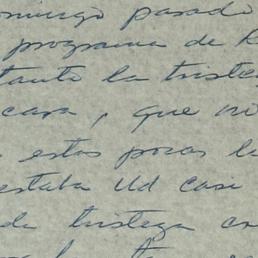 domingo pasado
programa de R
tanto la triste
casa, que no
estos pocas l
estaba Ud casi
de tristeza en